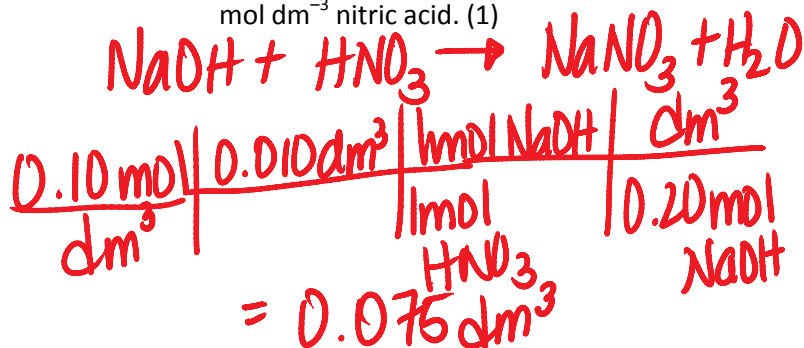 mol dm⁻³ nitric acid. (1)
NaOH + HNO₃ → NaNO₃ + H₂O
0.10 mol | 0.010 dm³ | 1mol NaOH | dm³
dm³ | | 1mol HNO₃ | 0.20 mol NaOH
= 0.075 dm³